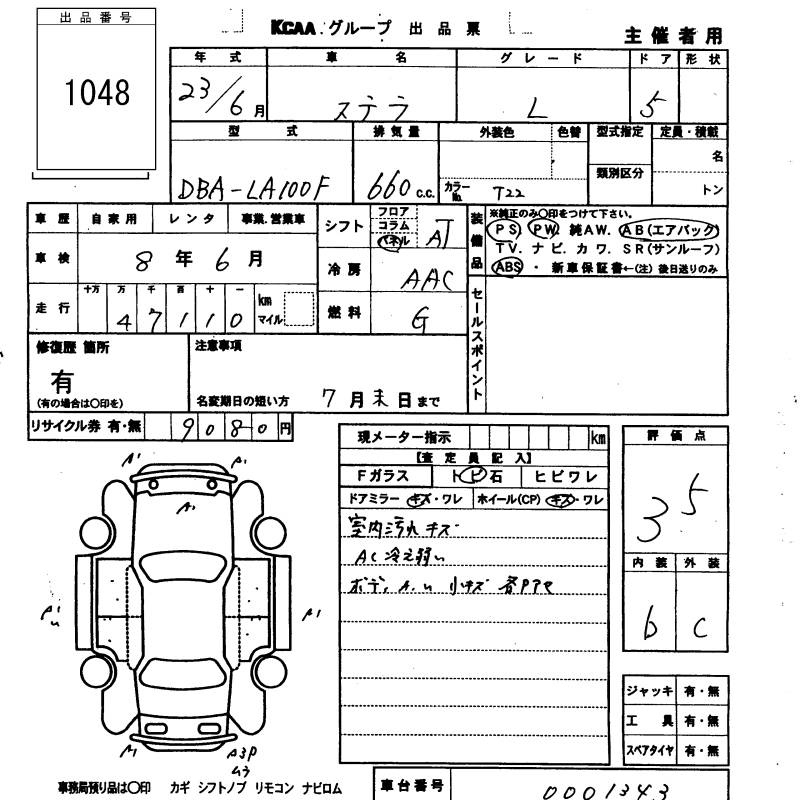 出品番号
1048
KCAA グループ 出品票
主催者用
年式 車名 グレード ドア 形状
23/6月 ステラ L 5
型式 排気量 外装色 色替 型式指定 定員・積載
類別区分
名
DBA-LA100F 660 c.c. カラーNo. T22 トン
車歴 自家用 レンタ 事業.営業車
車検 8年6月
走行 十万 万 千 百 十 一 km マイル
4 7 1 1 0
シフト フロア コラム パネル AT
冷房 AAC
燃料 G
装備品
※純正のみ○印をつけて下さい。
PS. PW. 純AW. AB(エアバック)
TV. ナビ. カワ. SR(サンルーフ)
ABS ・ 新車保証書←(注)後日送りのみ
セールスポイント
修復歴 箇所
有
(有の場合は○印を)
注意事項
名変期日の短い方 7月末日まで
リサイクル券 有・無 9080円
現メーター指示 km
【査定員記入】
Fガラス トビ石 ヒビワレ
ドアミラー キズ・ワレ ホイール(CP) キズ・ワレ
室内汚れ キズ
AC冷え弱い
ボディ A.U 小キズ 各P
評価点
3.5
内装 外装
b c
A' A'
A'
A' U
A'
A' A3P
ムラ
ジャッキ 有・無
工具 有・無
スペアタイヤ 有・無
事務局預り品は○印 カギ シフトノブ リモコン ナビロム
車台番号 0001343